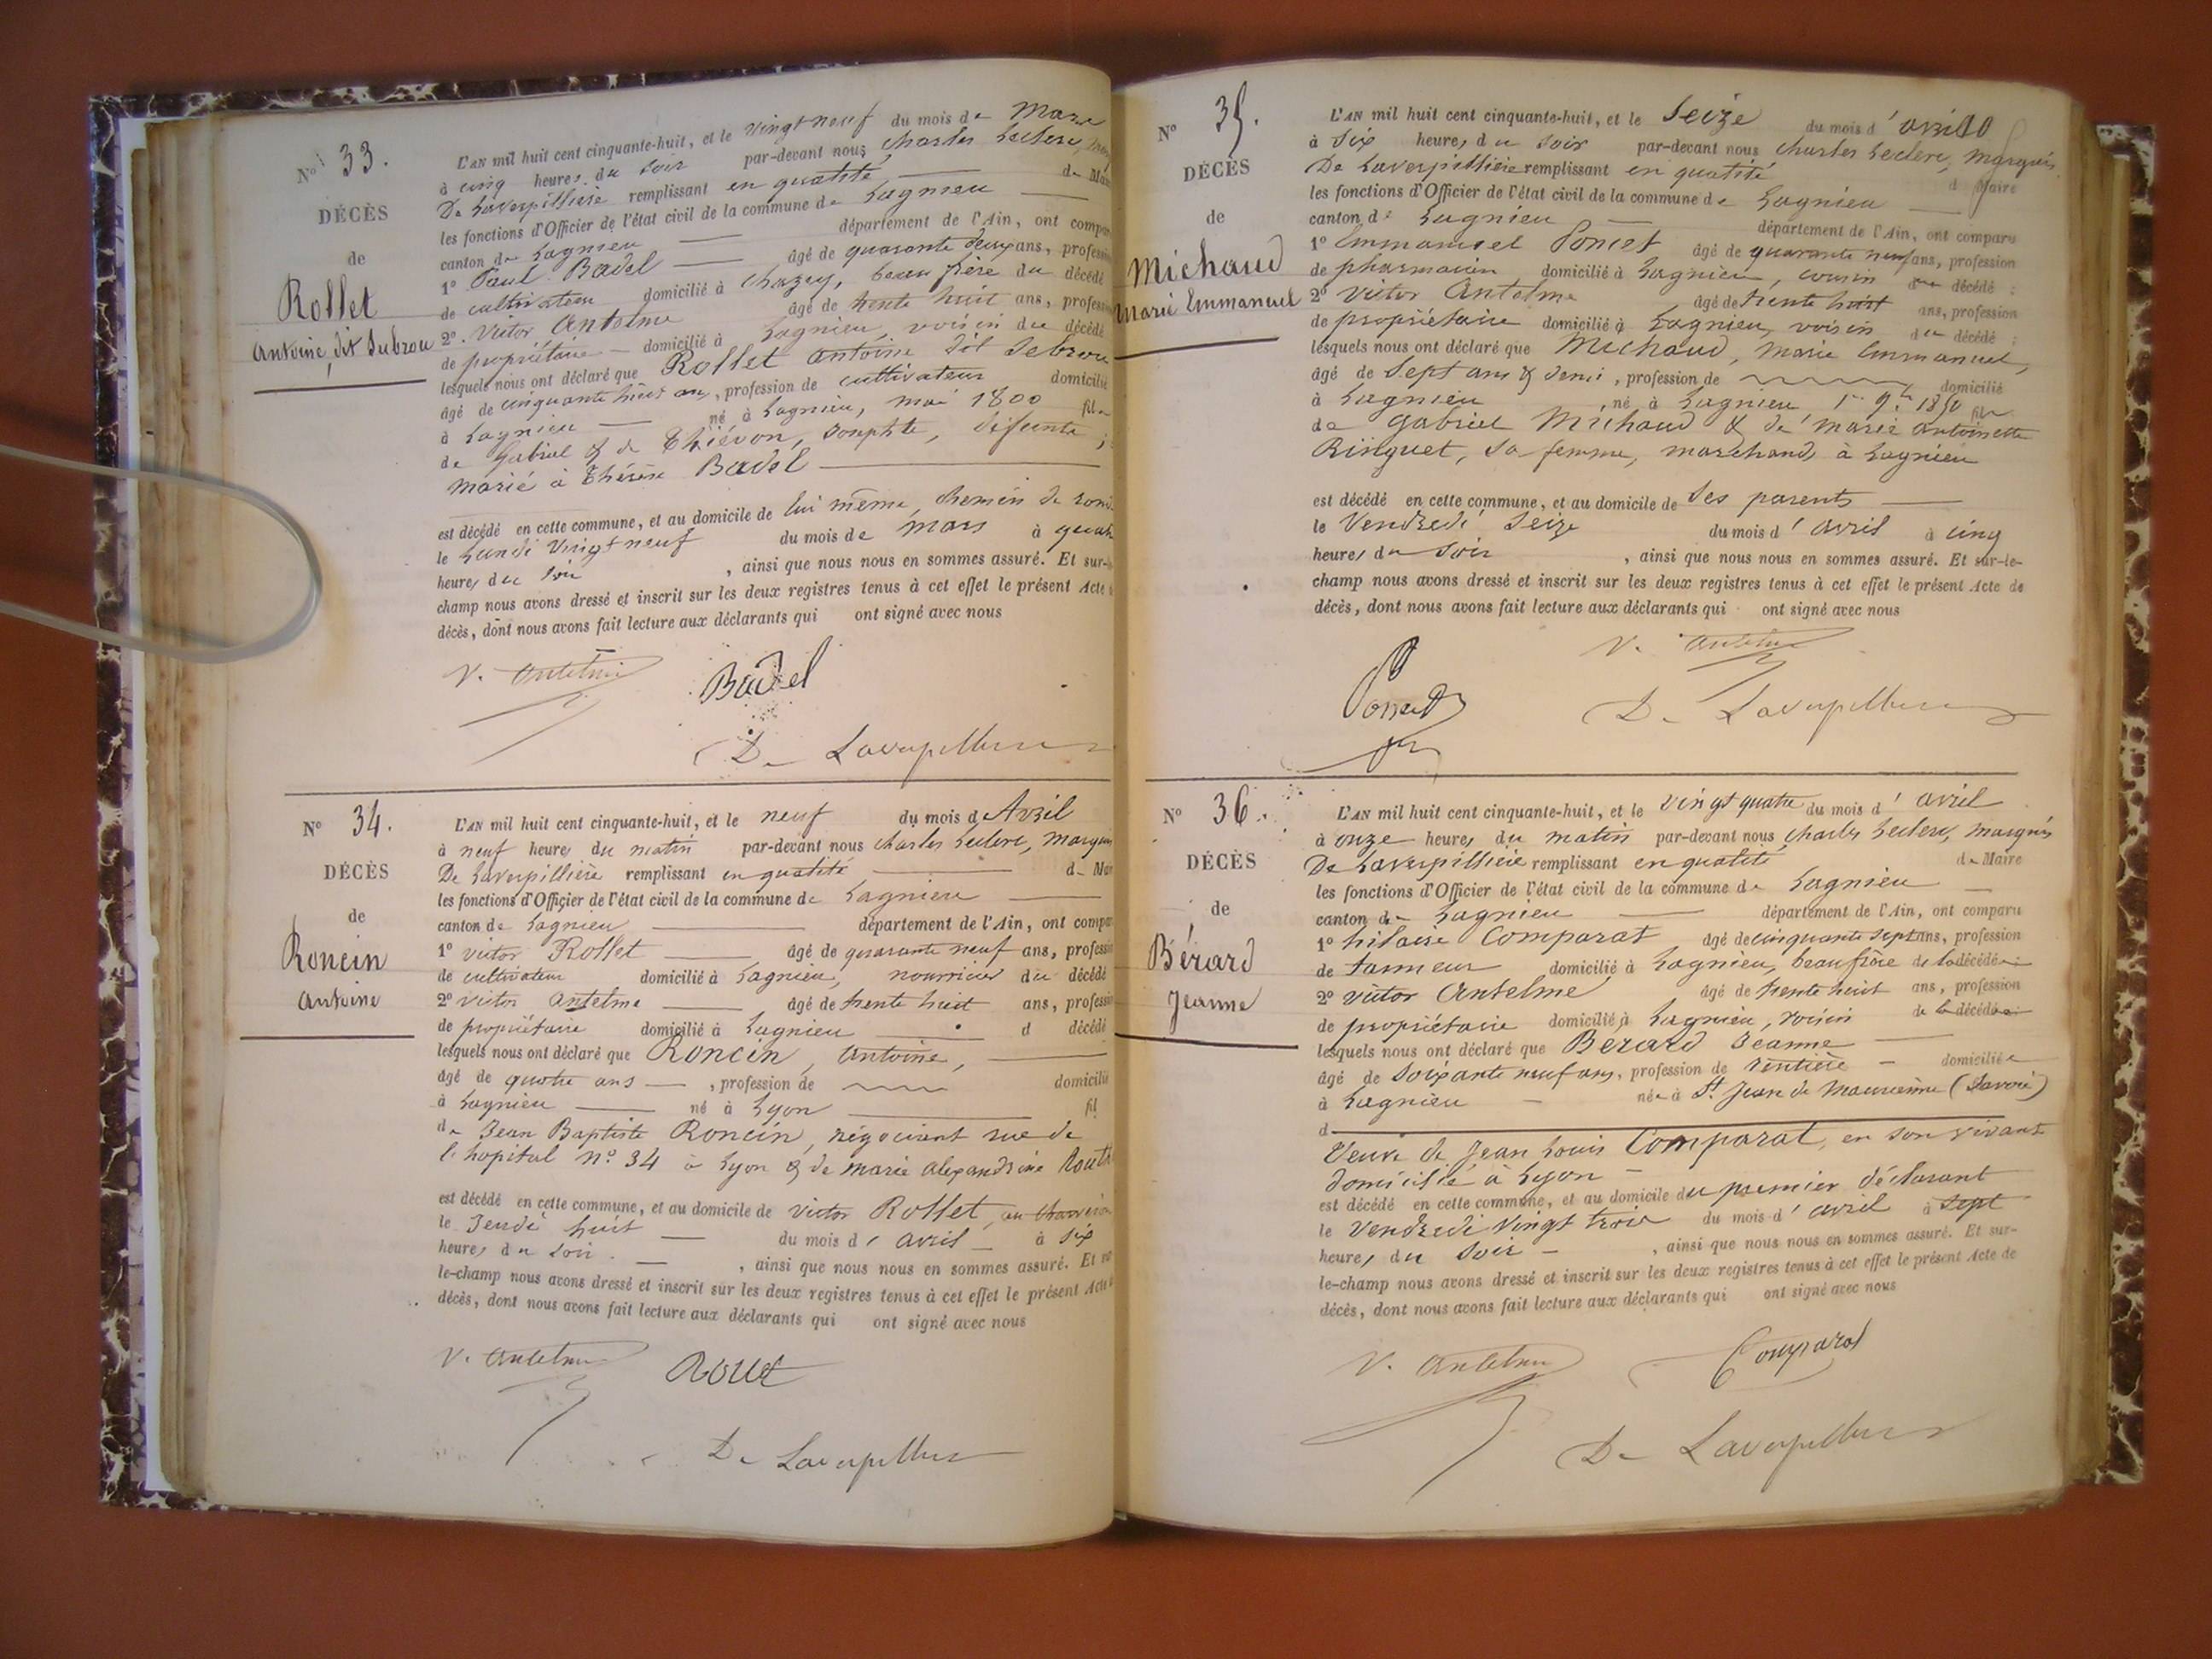 N° 33.
DÉCÈS
de
Rollet
Antoine, dit Subrou
L'AN mil huit cent cinquante-huit, et le vingt neuf du mois de Mars
à cinq heures du soir par-devant nous Charles Leclerc,
De Laverpillière remplissant en qualité de
les fonctions d'Officier de l'état civil de la commune de Lagnieu
canton de Lagnieu département de l'Ain, ont
1° Paul Badel âgé de quarante deux ans,
de cultivateur domicilié à Chazey, beau frère du décédé
2° Victor Antelme âgé de trente huit ans,
de propriétaire domicilié à Lagnieu, voisin du décédé
lesquels nous ont déclaré que Rollet Antoine dit
âgé de cinquante huit ans, profession de cultivateur domicilié
à Lagnieu né à Lagnieu, mai 1800 fils
de Gabriel & de Thiévon, défunte ;
marié à Thérèse Badel
est décédé en cette commune, et au domicile de lui même, chemin de
le Lundi vingt neuf du mois de mars à
heures du soir, ainsi que nous nous en sommes assuré. Et
champ nous avons dressé et inscrit sur les deux registres tenus à cet effet le présent Acte
décès, dont nous avons fait lecture aux déclarants qui ont signé avec nous
V. Antelme Badel
De Laverpillière
N° 34.
DÉCÈS
de
Roncin
Antoine
L'AN mil huit cent cinquante-huit, et le neuf du mois d Avril
à neuf heures du matin par-devant nous Charles Leclerc, marquis
De Laverpillière remplissant en qualité de
les fonctions d'Officier de l'état civil de la commune de Lagnieu
canton de Lagnieu département de l'Ain, ont
1° Victor Rollet âgé de quarante neuf ans,
de cultivateur domicilié à Lagnieu, nourricier du décédé
2° Victor Antelme âgé de trente huit ans,
de propriétaire domicilié à Lagnieu d décédé
lesquels nous ont déclaré que Roncin, Antoine,
âgé de quatre ans, profession de domicilié
à Lagnieu né à Lyon fil
de Jean Baptiste Roncin, négociant rue de
l'hopital n° 34 à Lyon & de marie alexandrine
est décédé en cette commune, et au domicile de Victor Rollet,
le Jeudi huit du mois d'avril à six
heures du soir, ainsi que nous nous en sommes assuré. Et
le-champ nous avons dressé et inscrit sur les deux registres tenus à cet effet le présent Acte
décès, dont nous avons fait lecture aux déclarants qui ont signé avec nous
V. Antelme Rollet
De Laverpillière
N° 35.
DÉCÈS
de
Michaud
Marie Emmanuel
L'AN mil huit cent cinquante-huit, et le Seize du mois d'avril
à six heures du soir par-devant nous Charles Leclerc, marquis
De Laverpillière remplissant en qualité de Maire
les fonctions d'Officier de l'état civil de la commune de Lagnieu
canton de Lagnieu département de l'Ain, ont comparu
1° Emmanuel Poncet âgé de quarante neuf ans, profession
de pharmacien domicilié à Lagnieu, cousin du décédé ;
2° Victor Antelme âgé de trente huit ans, profession
de propriétaire domicilié à Lagnieu, voisin du décédé ;
lesquels nous ont déclaré que Michaud, Marie Emmanuel,
âgé de Sept ans & demi, profession de domicilié
à Lagnieu né à Lagnieu 1er 9bre 1850 fils
de Gabriel Michaud & de marie antoinette
Ringuet, sa femme, marchands à Lagnieu
est décédé en cette commune, et au domicile de ses parents
le Vendredi seize du mois d'avril à cinq
heures du soir, ainsi que nous nous en sommes assuré. Et sur-le-
champ nous avons dressé et inscrit sur les deux registres tenus à cet effet le présent Acte de
décès, dont nous avons fait lecture aux déclarants qui ont signé avec nous
V. Antelme
Poncet De Laverpillière
N° 36.
DÉCÈS
de
Bérard
Jeanne
L'AN mil huit cent cinquante-huit, et le vingt quatre du mois d'avril
à onze heures du matin par-devant nous Charles Leclerc, marquis
De Laverpillière remplissant en qualité de Maire
les fonctions d'Officier de l'état civil de la commune de Lagnieu
canton de Lagnieu département de l'Ain, ont comparu
1° hilaire Comparat âgé de cinquante sept ans, profession
de tanneur domicilié à Lagnieu, beau frère de la décédée
2° Victor Antelme âgé de trente huit ans, profession
de propriétaire domicilié à Lagnieu, voisin de la décédée
lesquels nous ont déclaré que Bérard Jeanne
âgé de soixante neuf ans, profession de rentière domiciliée
à Lagnieu née à St. Jean de Maurienne (Savoie)
d
Veuve de Jean Louis Comparat, en son vivant
domicilié à Lyon
est décédé en cette commune, et au domicile du premier déclarant
le Vendredi vingt trois du mois d'avril à sept
heures du soir, ainsi que nous nous en sommes assuré. Et sur-
le-champ nous avons dressé et inscrit sur les deux registres tenus à cet effet le présent Acte de
décès, dont nous avons fait lecture aux déclarants qui ont signé avec nous
V. Antelme Comparat
De Laverpillière